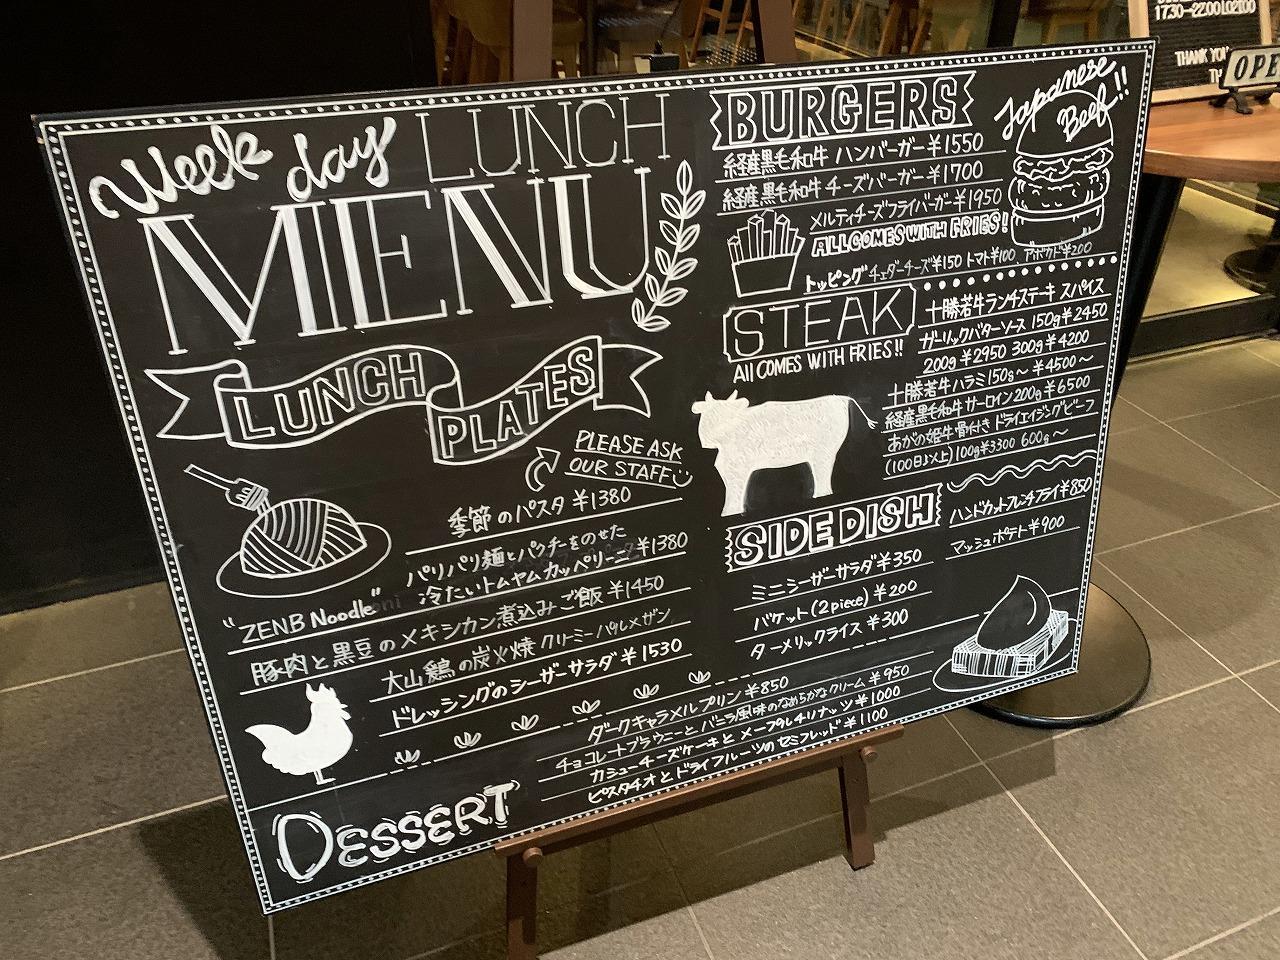 Week day LUNCH
MENU
LUNCH
PLATES
PLEASE ASK
OUR STAFF
季節のパスタ ¥1380
パリパリ麺とパクチーをのせた
冷たいトムヤムカッペリーニ ¥1380
"ZENB Noodle"
豚肉と黒豆のメキシカン煮込みご飯 ¥1450
大山鶏の炭火焼 クリーミーパルメザン
ドレッシングのシーザーサラダ ¥1530
DESSERT
ダークキャラメルプリン ¥850
チョコレートブラウニーと バニラ風味のなめらかなクリーム ¥950
カシューチーズケーキと メープルレチリナッツ ¥1000
ピスタチオとドライフルーツのセミフレッド ¥1100
BURGERS
Japanese
Beef!!
経産黒毛和牛 ハンバーガー ¥1550
経産黒毛和牛 チーズバーガー ¥1700
メルティチーズフライバーガー ¥1950
ALL COMES WITH FRIES!
トッピング チェダーチーズ ¥150 トマト ¥100 アボカド ¥200
STEAK
All COMES WITH FRIES!!
十勝若牛ランチステーキ スパイス
ガーリックバターソース 150g ¥2450
200g ¥2950 300g ¥4200
十勝若牛ハラミ 150g〜 ¥4500〜
経産黒毛和牛 サーロイン 200g ¥6500
あかの姫牛骨付き ドライエイジングビーフ
(100日以上) 100g ¥3300 600g〜
SIDE DISH
ハンドカットフレンチフライ ¥850
マッシュポテト ¥900
ミニシーザーサラダ ¥350
バケット (2piece) ¥200
ターメリックライス ¥300
17:30-22:00 LO21:00
THANK YOU
OPE